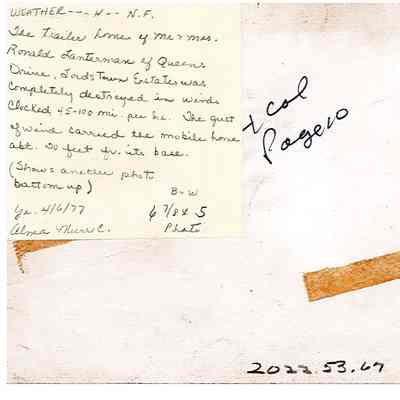 WEATHER --- H -- N.F.
The trailer home of Mr & Mrs.
Ronald Lanterman of Queens
Drive, Lordstown Estates was
completely destroyed in winds
clocked 45-100 mi. per hr. The gust
of wind carried the mobile home
abt. 50 feet fr. its base.
(Shows another photo
bottom up)
B-W
Ya. 4/6/77
6 7/8 x 5
Alma
Photo
1 col
Page 10
2022.53.67